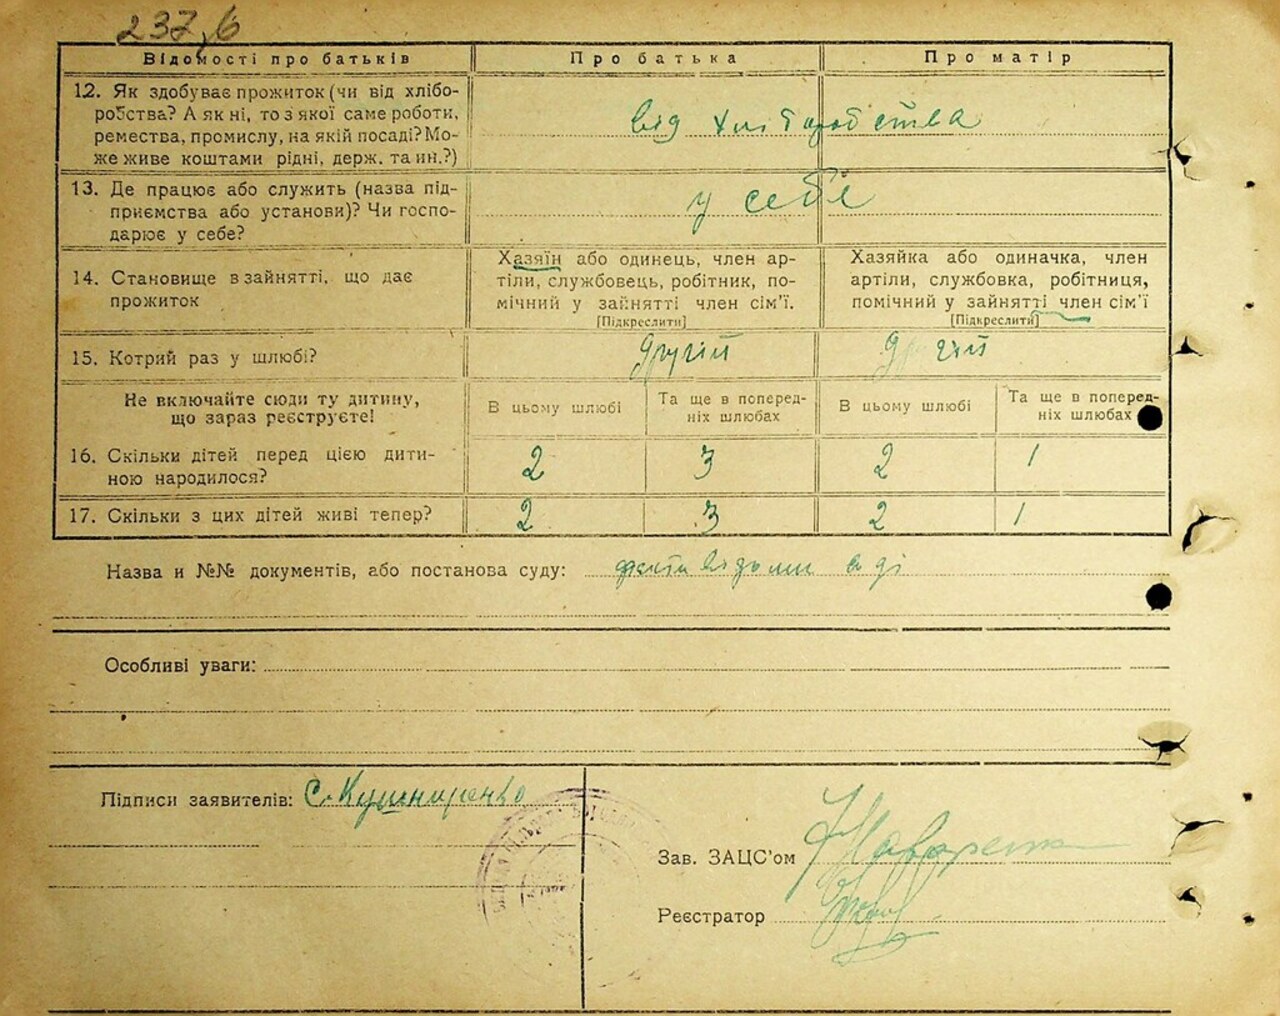 237,6
Відомості про батьків
Про батька
Про матір
12. Як здобуває прожиток (чи від хлібо-
робства? А як ні, то з якої саме роботи,
ремества, промислу, на якій посаді? Мо-
же живе коштами рідні, держ. та ин.?)
від хліборобства
13. Де працює або служить (назва під-
приємства або установи)? Чи госпо-
дарює у себе?
у себе
14. Становище в зайнятті, що дає
прожиток
Хазяїн або одинець, член ар-
тіли, службовець, робітник, по-
мічний у зайнятті член сім'ї.
[Підкреслити]
Хазяйка або одиначка, член
артіли, службовка, робітниця,
помічний у зайнятті член сім'ї
[Підкреслити]
15. Котрий раз у шлюбі?
другій
другій
Не включайте сюди ту дитину,
що зараз реєструєте!
В цьому шлюбі
Та ще в поперед-
ніх шлюбах
В цьому шлюбі
Та ще в поперед-
ніх шлюбах
16. Скільки дітей перед цією дити-
ною народилося?
2 3 2 1
17. Скільки з цих дітей живі тепер?
2 3 2 1
Назва и №№ документів, або постанова суду:
Особливі уваги:
Підписи заявителів: С. Кушниренко
Зав. ЗАЦС'ом
Реєстратор